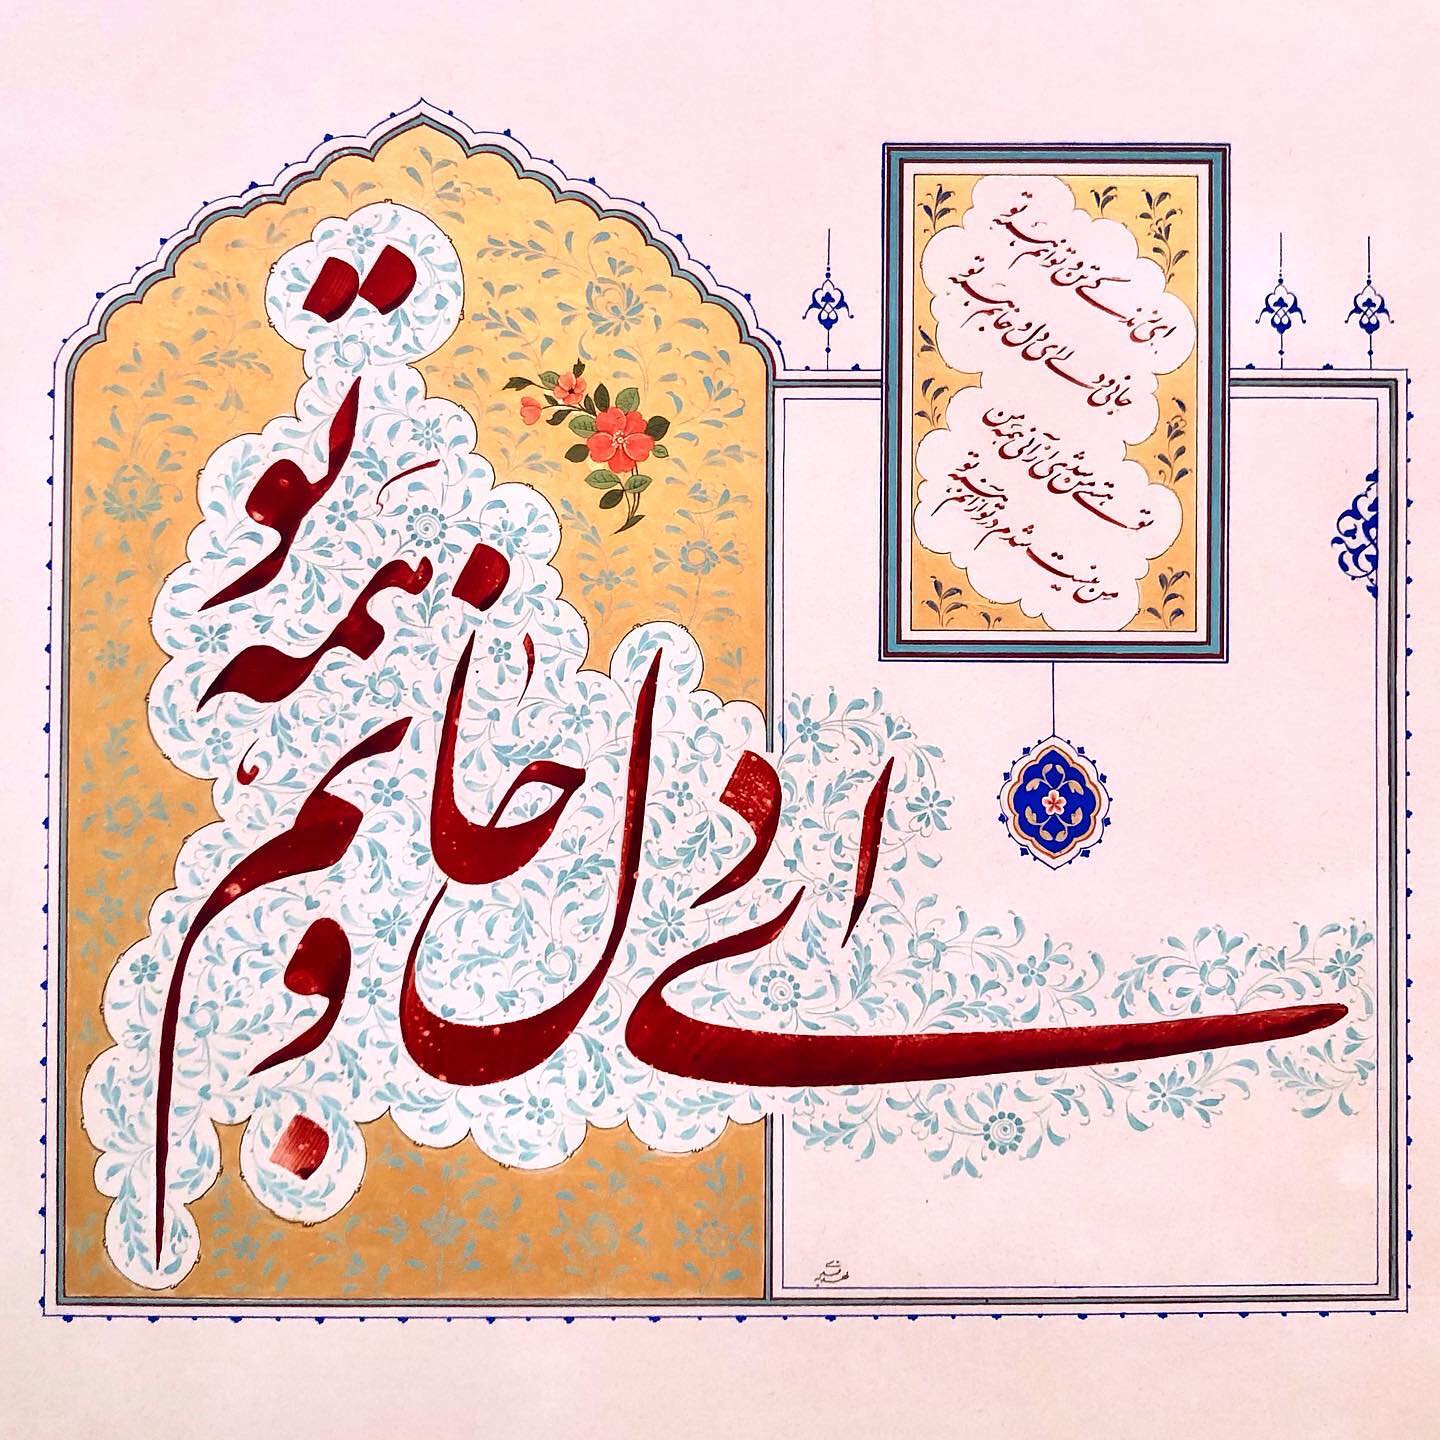 ای زندگی تن و توانم همه تو
جانی و دلی ای دل و جانم همه تو
تو هستی من شدی از آنی همه من
من نیست شدم در تو از آنم همه تو
ای دل و جانم همه تو